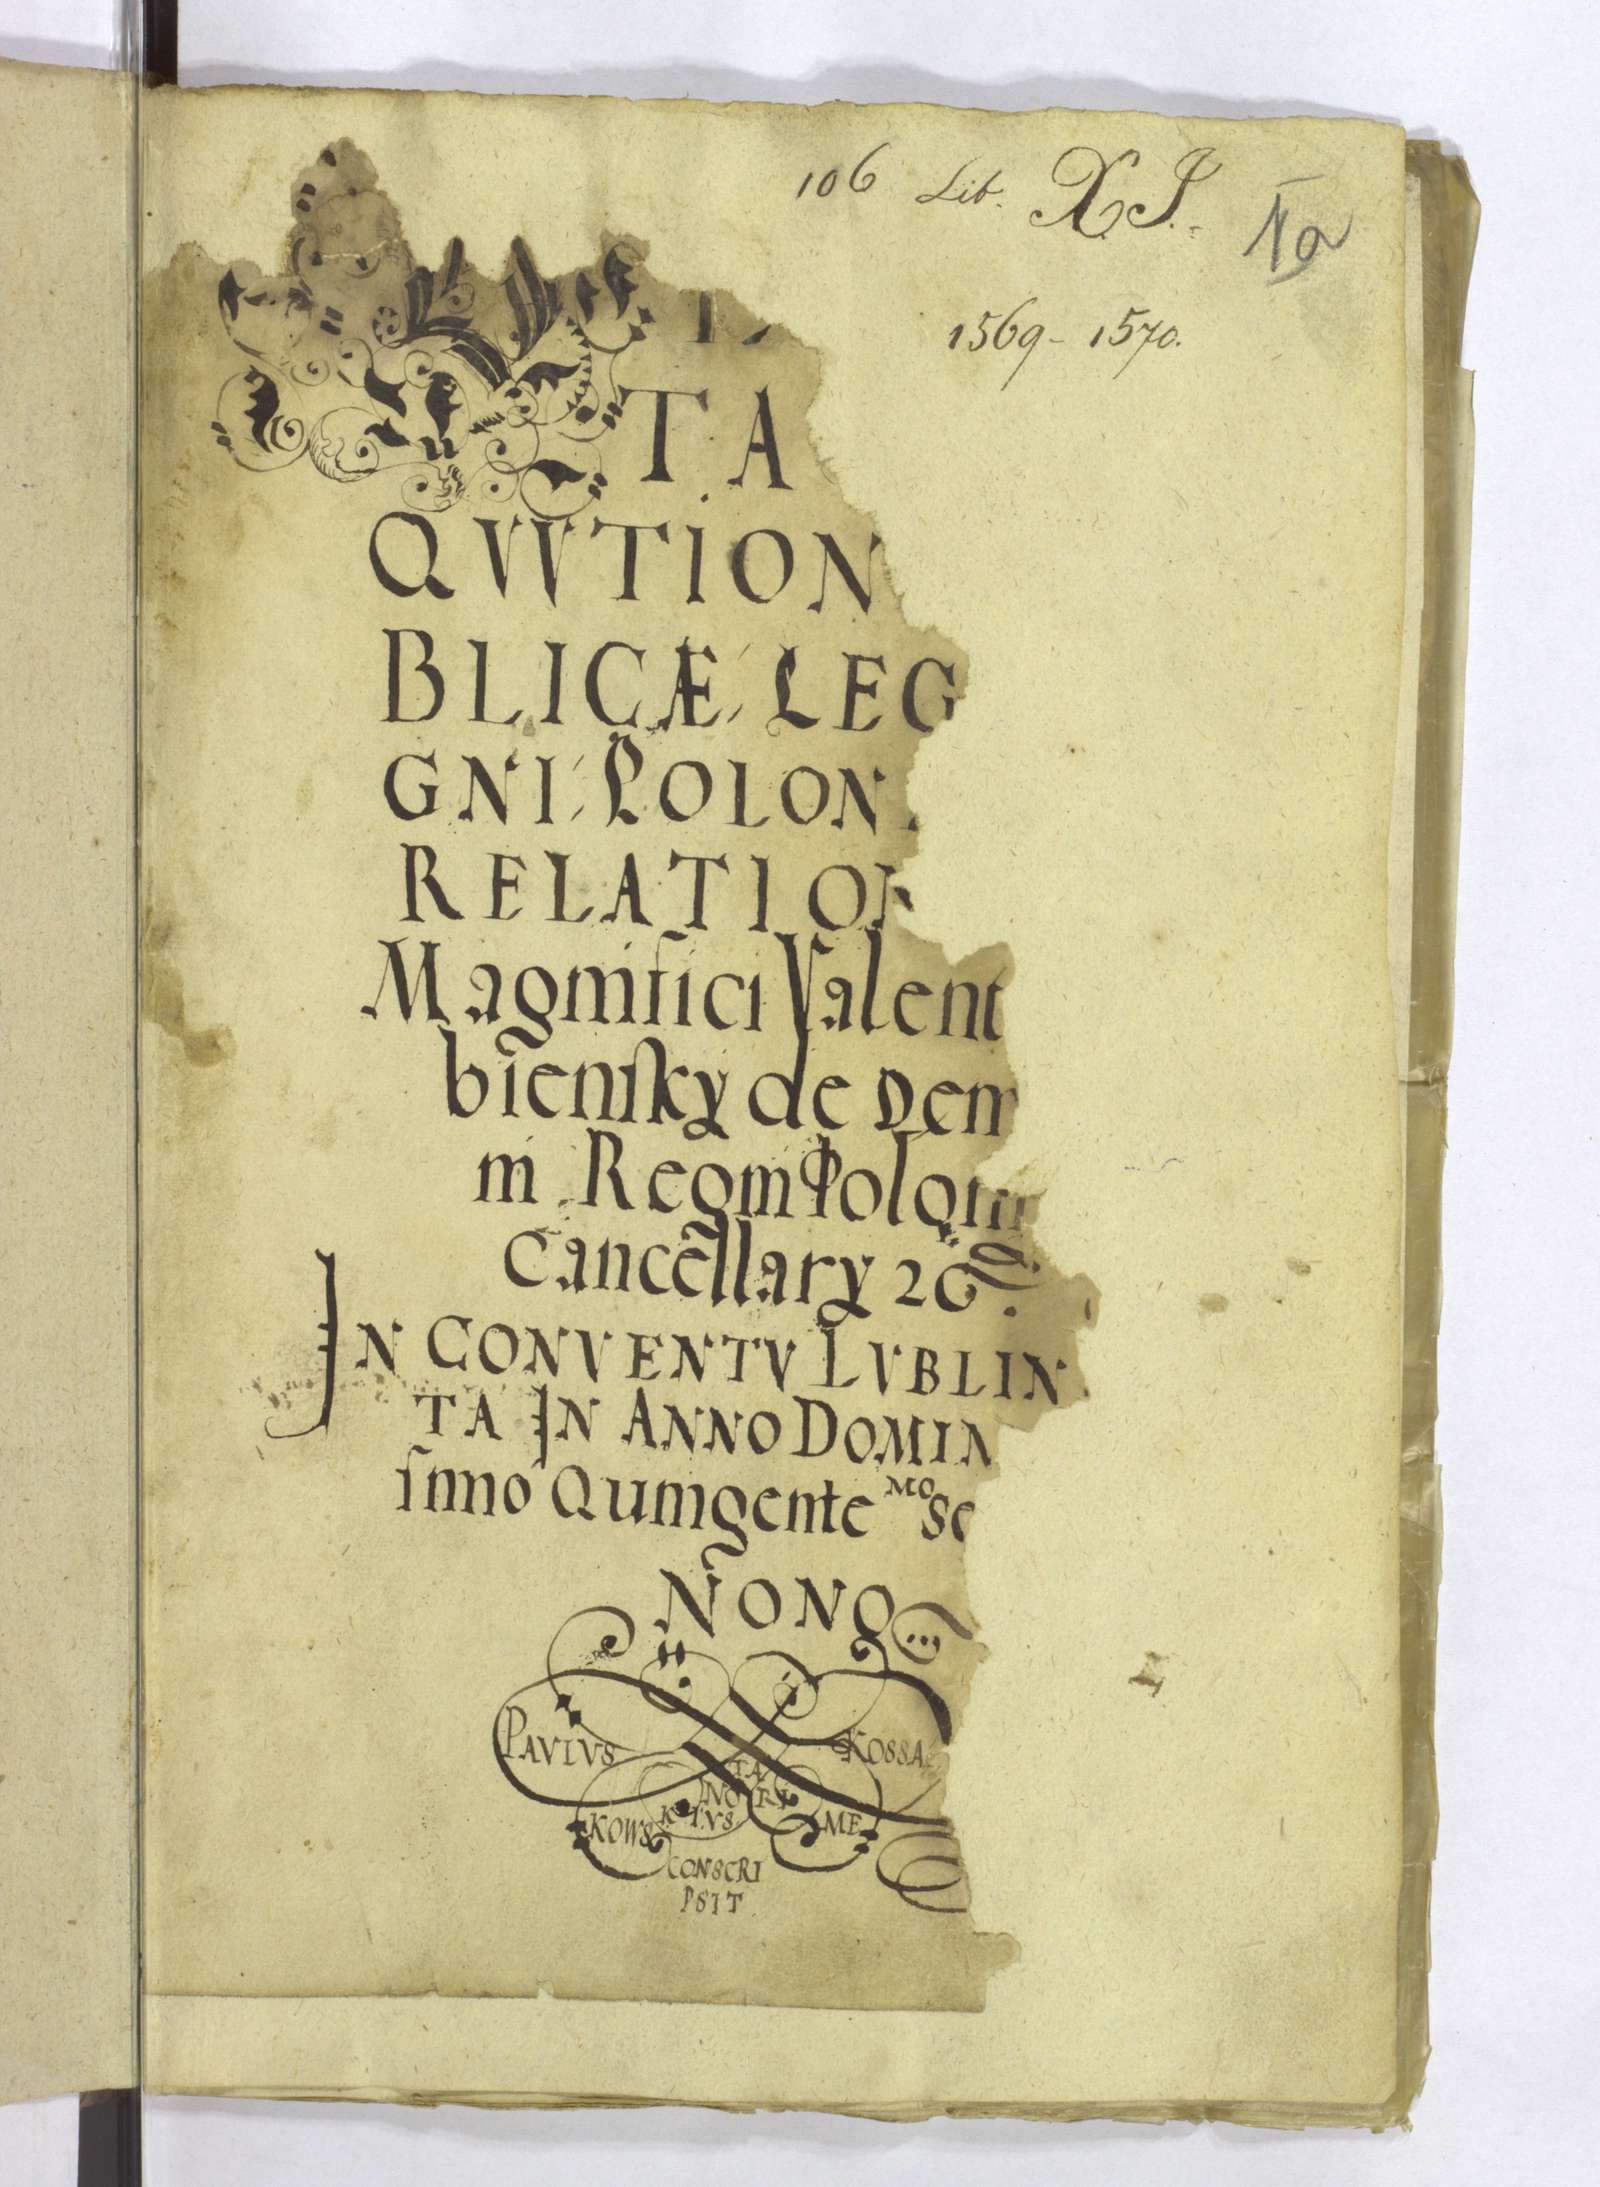 106 Lib. XI.
1a
1569 - 1570.
TA
QVVTION
BLICÆ LEG
GNI POLON
RELATION
Magnifici Valent
biensky de Dem
ni Regni Poloni
Cancellary 2c
IN CONVENTV LVBLIN
TA IN ANNO DOMIN
simo Quingente MO se
NONO
PAVLVS KOSSA
TA
NO RI
KOWS K I.VS ME
CONSCRI
PSIT